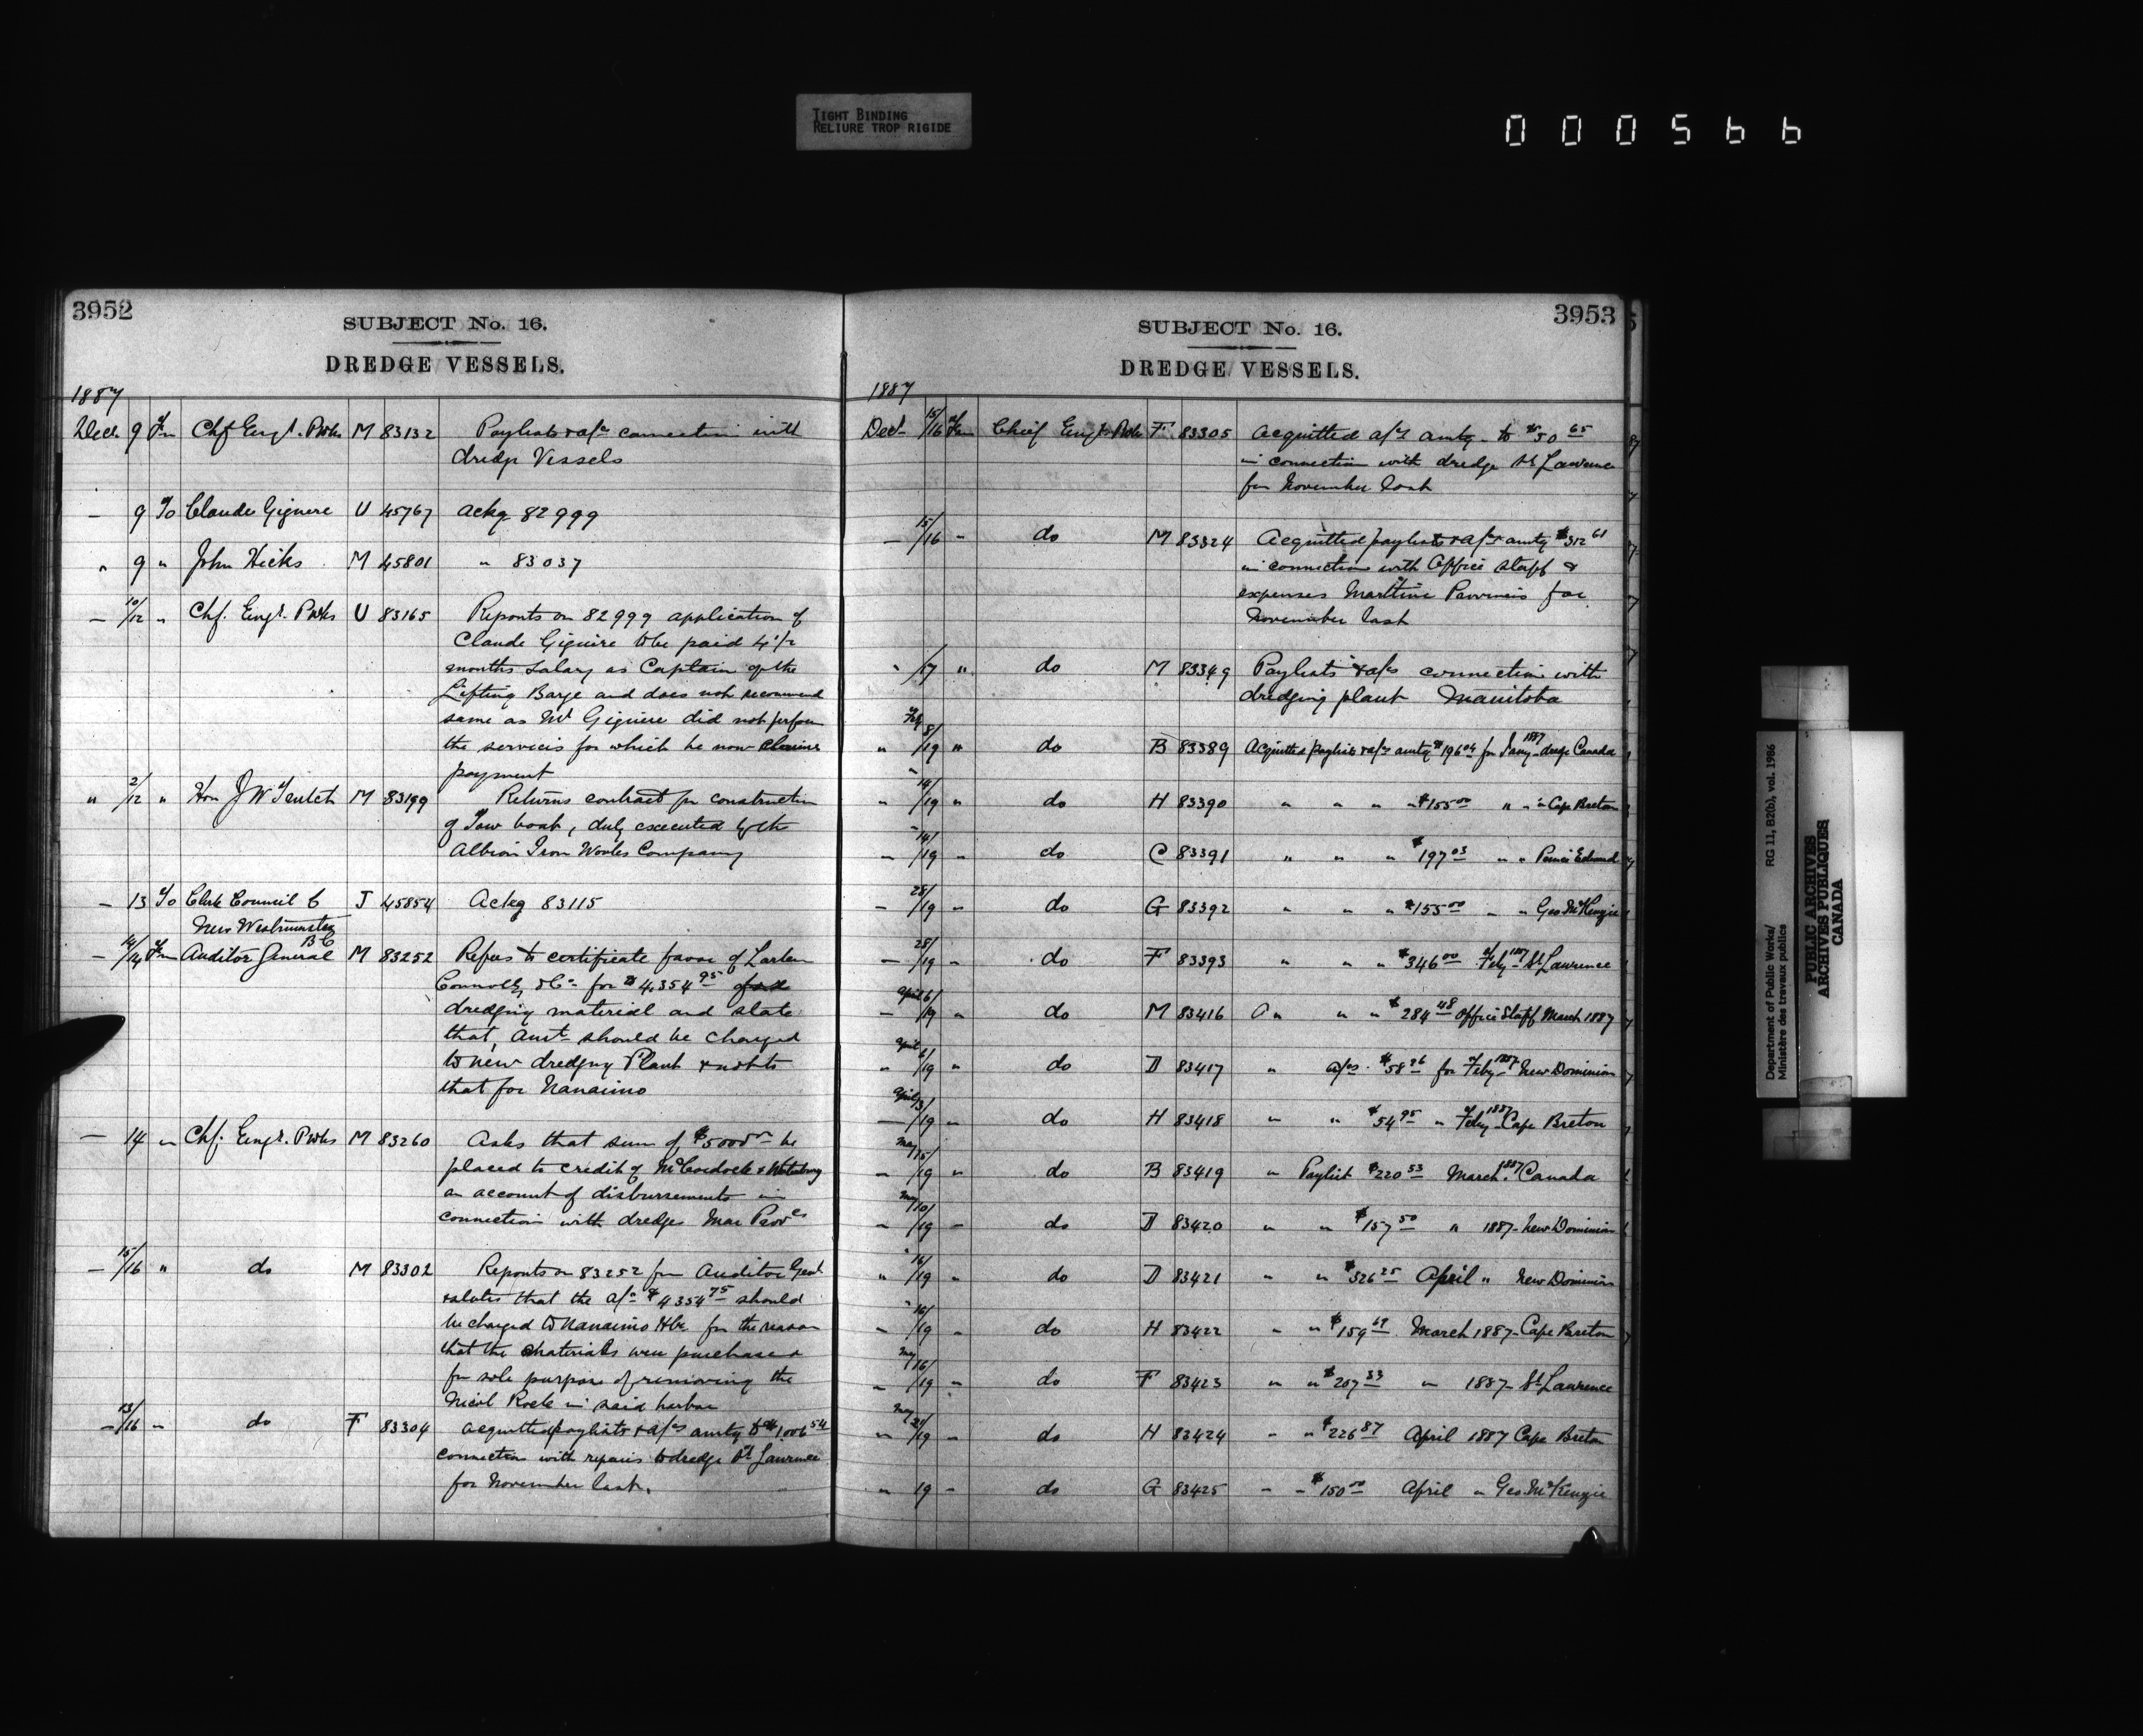 TIGHT BINDING
RELIURE TROP RIGIDE
000566
3952
SUBJECT No. 16.
DREDGE VESSELS.
1887
Decr 9 Fm Chf Engr. PWks M 83132 Paylists & a/cs connection with
dredge Vessels
— 9 To Claude Giguere U 45767 ackg 82999
" 9 " John Hicks M 45801 " 83037
— 10/12 " Chf. Engr. PWks U 83165 Reports on 82999 application of
Claude Giguire to be paid 4 1/2
months salary as Captain of the
Lifting Barge and does not recommend
same as Mr Giguire did not perform
the services for which he now claims
payment
" 2/12 " Hon J W Trutch M 83199 Returns contract for construction
of Tow boat, duly executed by the
Albion Iron Works Company
— 13 To Clerk Council C J 45854 Ackg 83115
New Westminster
B C
— 14/14 Fm Auditor General M 83252 Refers to certificate favor of Larken
Connolly & Co for $4,354 95
dredging material and state
that, amt should be charged
to new dredging Plant & not to
that for Nanaimo
— 14 " Chf. Engr. PWks M 83260 Asks that sum of $5000 be
placed to credit of McCordock &
on account of disbursements in
connection with dredges Mar Provces
— 15/16 " do M 83302 Reports on 83252 fm Auditor Genl
& states that the a/c $4354 75 should
be charged to Nanaimo Hbr for the reason
that the materials were purchased
for sole purpose of removing the
Nicol Rock in said harbor
— 13/16 " do F 83304 acquitted paylists & a/cs amtg to $1,006 54
connection with repairs to dredge St Lawrence
for November last.
3953
SUBJECT No. 16.
DREDGE VESSELS.
1887
Decr 15/16 Fm Chief Engr PWks F 83305 Acquitted a/cs amtg to $50 65
in connection with dredge St Lawrence
for November last
— 15/16 " do M 83324 Acquitted paylists & a/cs amtg $312 61
in connection with Office staff &
expenses Maritime Provinces for
November last
" /17 " do M 83349 Paylists & a/cs connection with
dredging plant Manitoba
" Feby 8/19 " do B 83389 Acquitted paylists & a/cs amtg $196 04 for Jany 1887 dredge Canada
" " 14/19 " do H 83390 " " " " $155 00 " " " Cape Breton
— " 14/19 " do C 83391 " " " $197 03 " " Prince Edward
— 28/19 " do G 83392 " " " $155 00 " " Geo McKenzie
— 28/19 " do F 83393 " " " $346 00 Feby 1887 St Lawrence
— April 6/19 " do M 83416 a " " " $284 48 Office Staff March 1887
" April 6/19 " do D 83417 " a/cs $58 26 for Feby 1887 New Dominion
— April 13/19 " do H 83418 " " $54 95 " Feby 1887 Cape Breton
— May 15/19 " do B 83419 " Paylist $220 53 March 1887 Canada
— May 10/19 — do D 83420 " " $157 50 " 1887 New Dominion
" " 16/19 " do D 83421 " " $326 25 April " New Dominion
" " 16/19 " do H 83422 " " $159 69 March 1887 Cape Breton
— May 16/19 " do F 83423 " " $207 33 " 1887 St Lawrence
" May 21/19 — do H 83424 " " $226 87 April 1887 Cape Breton
" 19 — do G 83425 " " $150 00 April " Geo McKenzie
Department of Public Works/ RG 11, B2(b), vol. 1986
Ministère des travaux publics
PUBLIC ARCHIVES
ARCHIVES PUBLIQUES
CANADA